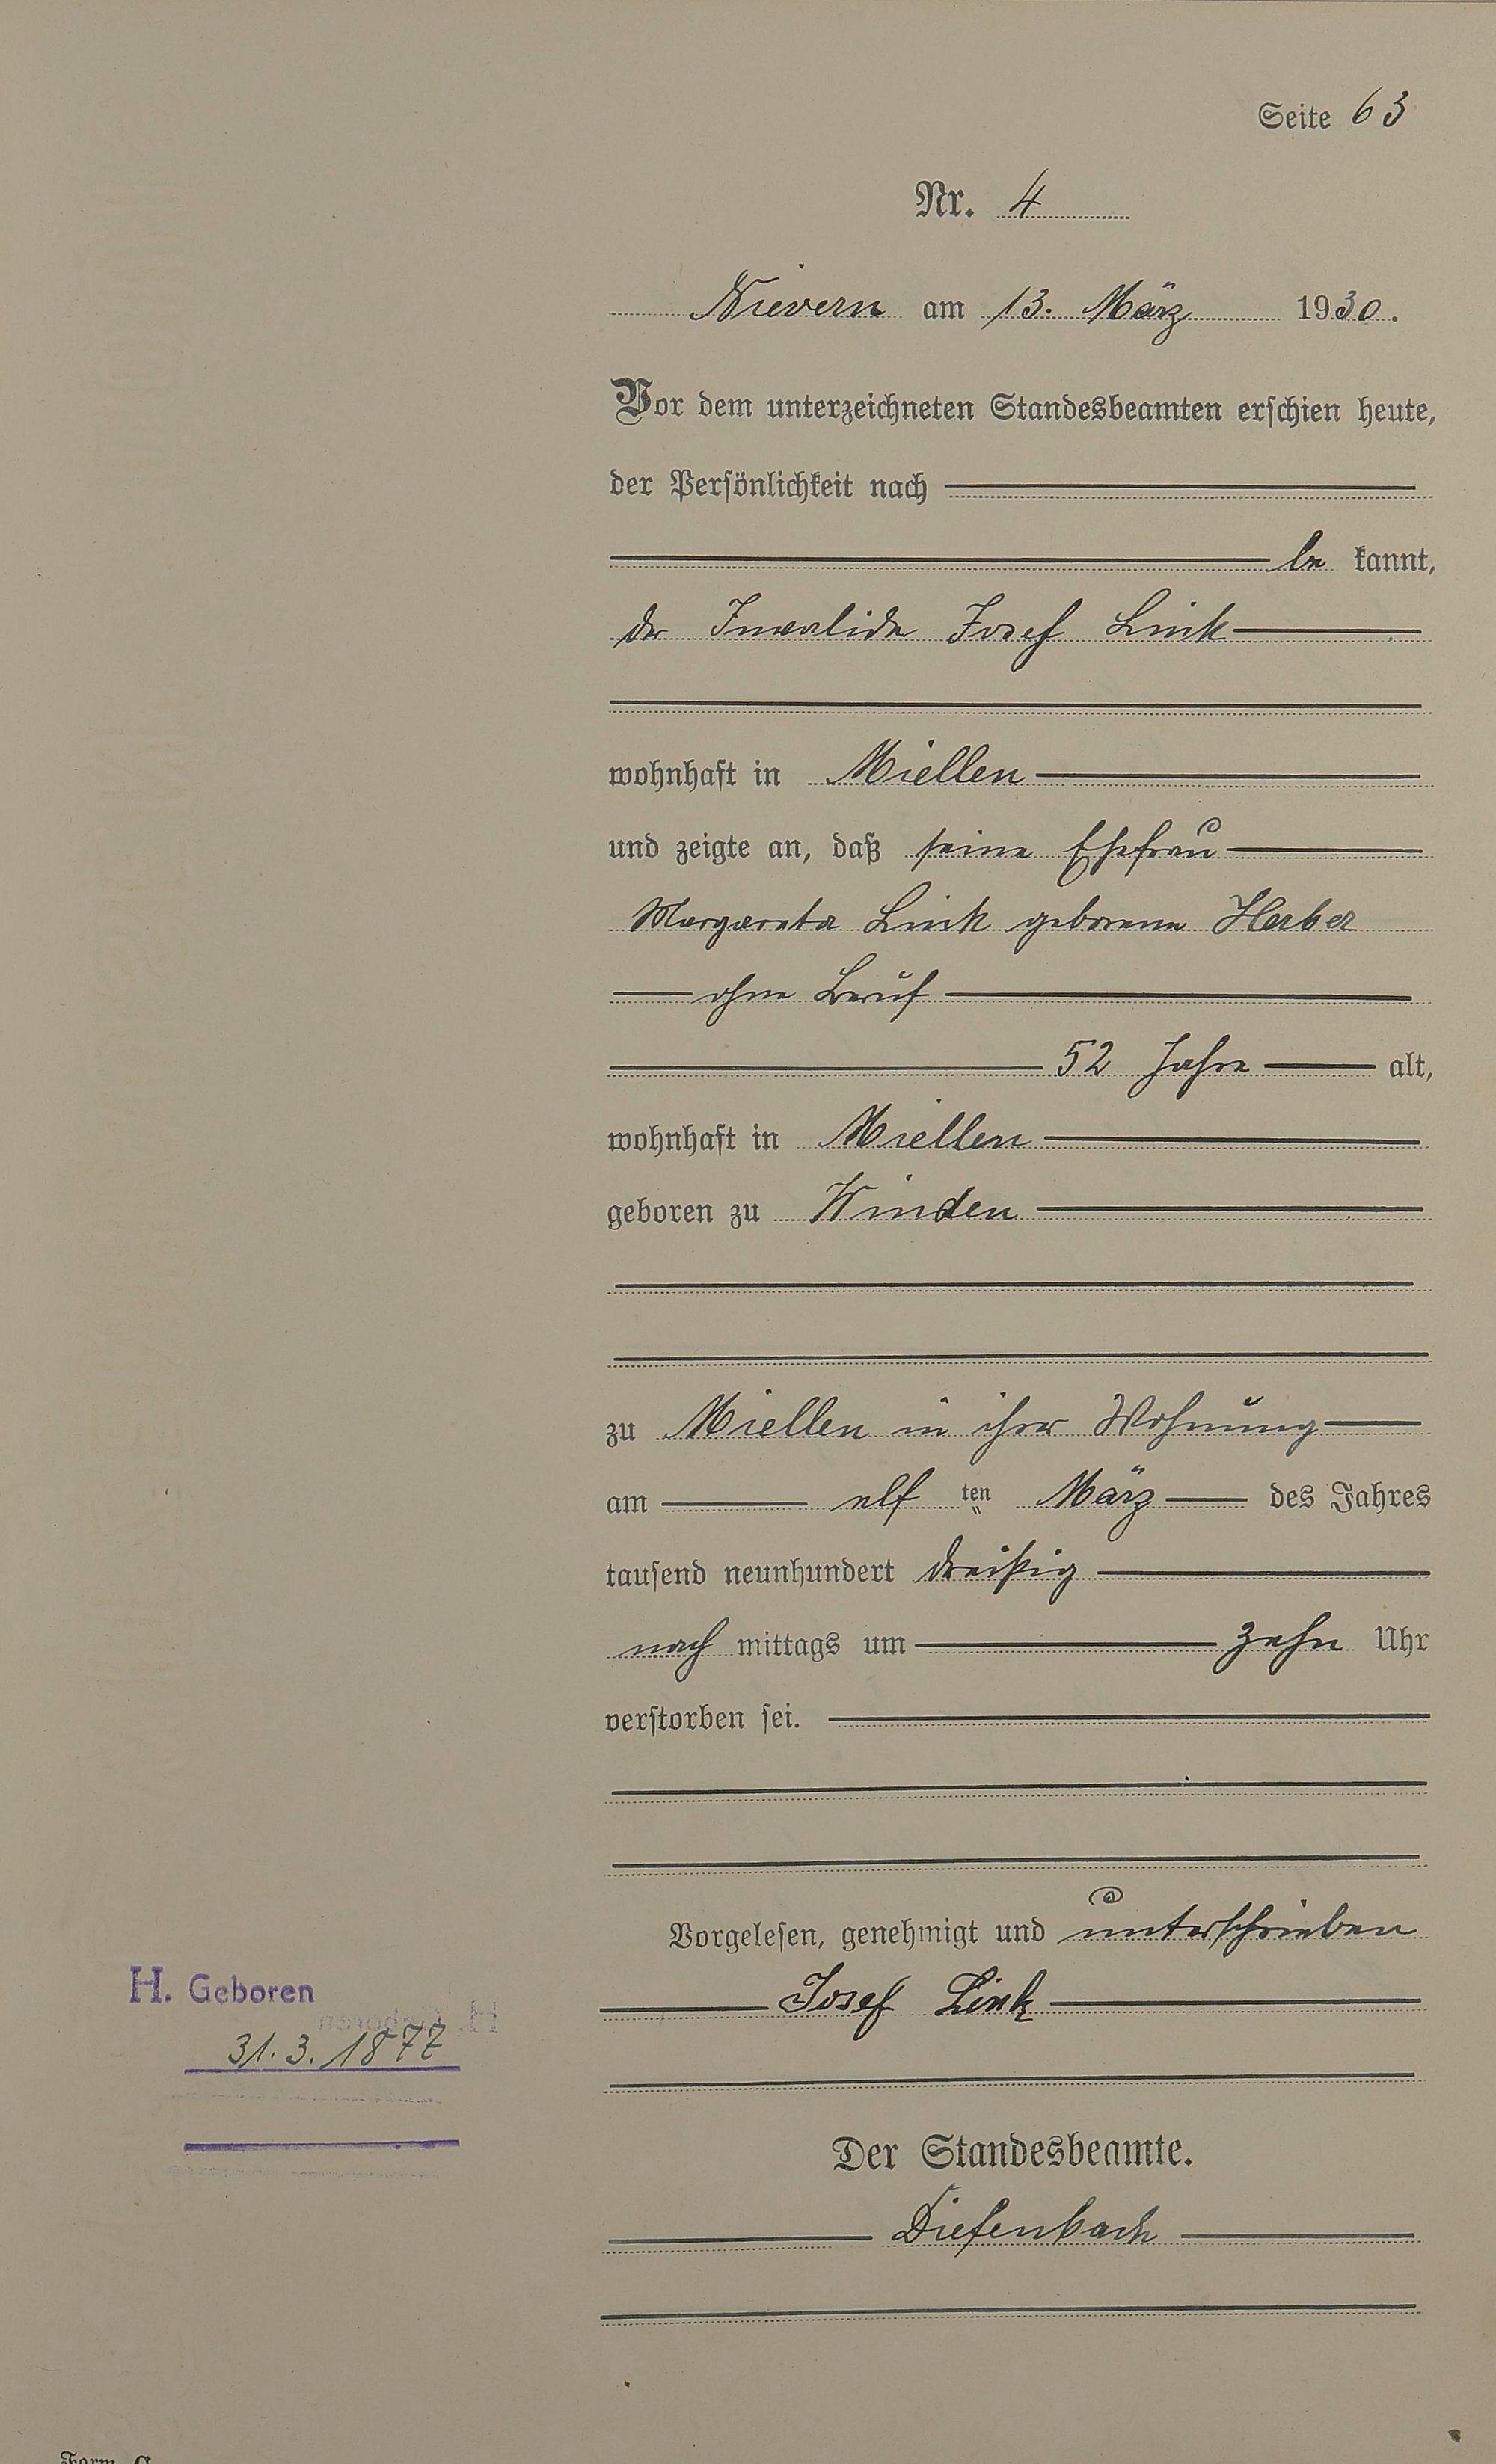 Seite 63
Nr. 4
Nievern am 13. März 1930.
Vor dem unterzeichneten Standesbeamten erschien heute,
der Persönlichkeit nach
be kannt,
der Invalide Josef Link
wohnhaft in Miellen
und zeigte an, daß seine Ehefrau
Margareta Link geborene Herber
ohne Beruf
52 Jahre alt,
wohnhaft in Miellen
geboren zu Winden
zu Miellen in ihrer Wohnung
am elf ten März des Jahres
tausend neunhundert dreißig
nach mittags um zehn Uhr
verstorben sei.
Vorgelesen, genehmigt und unterschrieben
Josef Link
H. Geboren
31.3.1877
Der Standesbeamte.
Diefenbach
Form. C